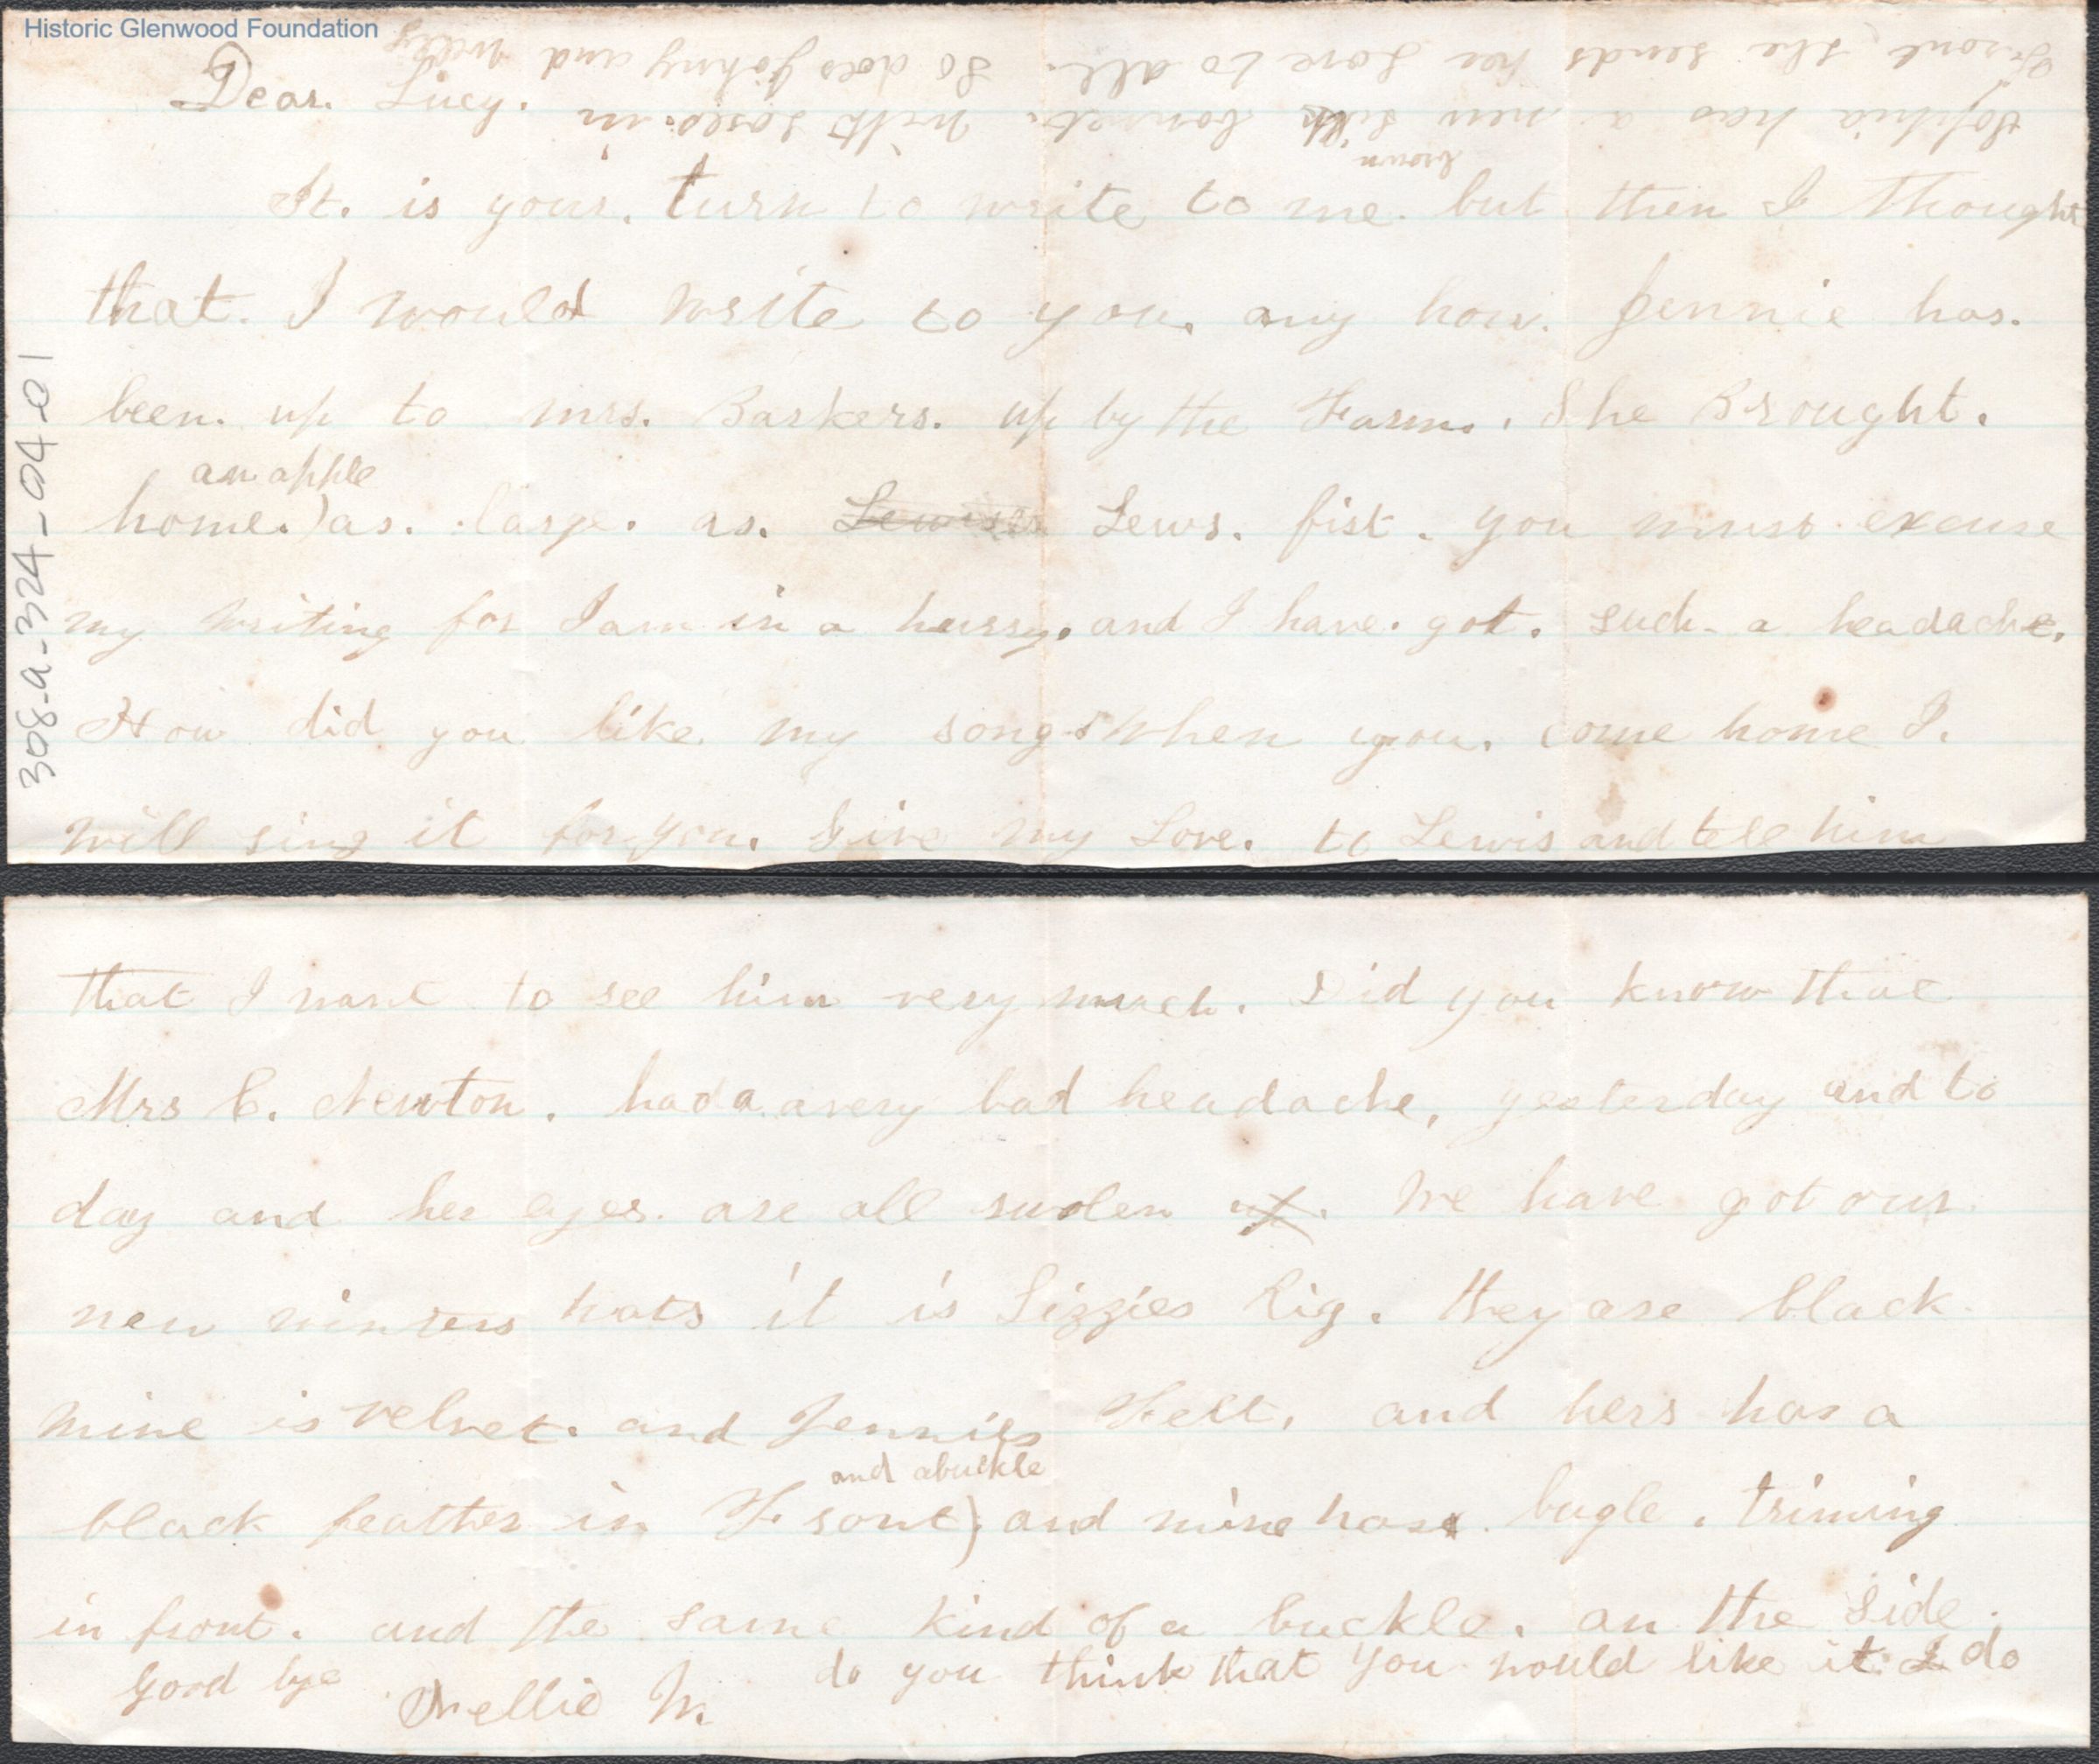 Historic Glenwood Foundation
Dear. Lucy.
It. is your. turn to write to me. but then I thought
that. I would write to you. any how. Jennie has.
been. up to mrs. Barkers. up by the Farm. She Brought.
an apple
home.) as. large. as. Lewises Lews. fist. you must excuse
my writing for I am in a hurry. and I have. got. such a headache.
How did you like my songs When you. come home I.
will sing it for you. Give my Love. to Lewis and tell him
308-a-324-04-01
that I want to see him very much. Did you know that
Mrs C. Newton. had a avery bad headache, yesterday and to
day and her eyes. are all swolen up. We have got our
new winters hats it is Lizzies Rig. they are black
mine is velvet. and Jennies Felt. and hers has a
and abuckle
black feather in Front) and mine has. bugle. triming
in front. and the same kind of a buckle. on the side.
do you think that you would like it I do
Good bye Nellie N.
Sophia has a new silk bonnet. with roses. in
brown
Front she sends her Love to all. So does Johny and Willy